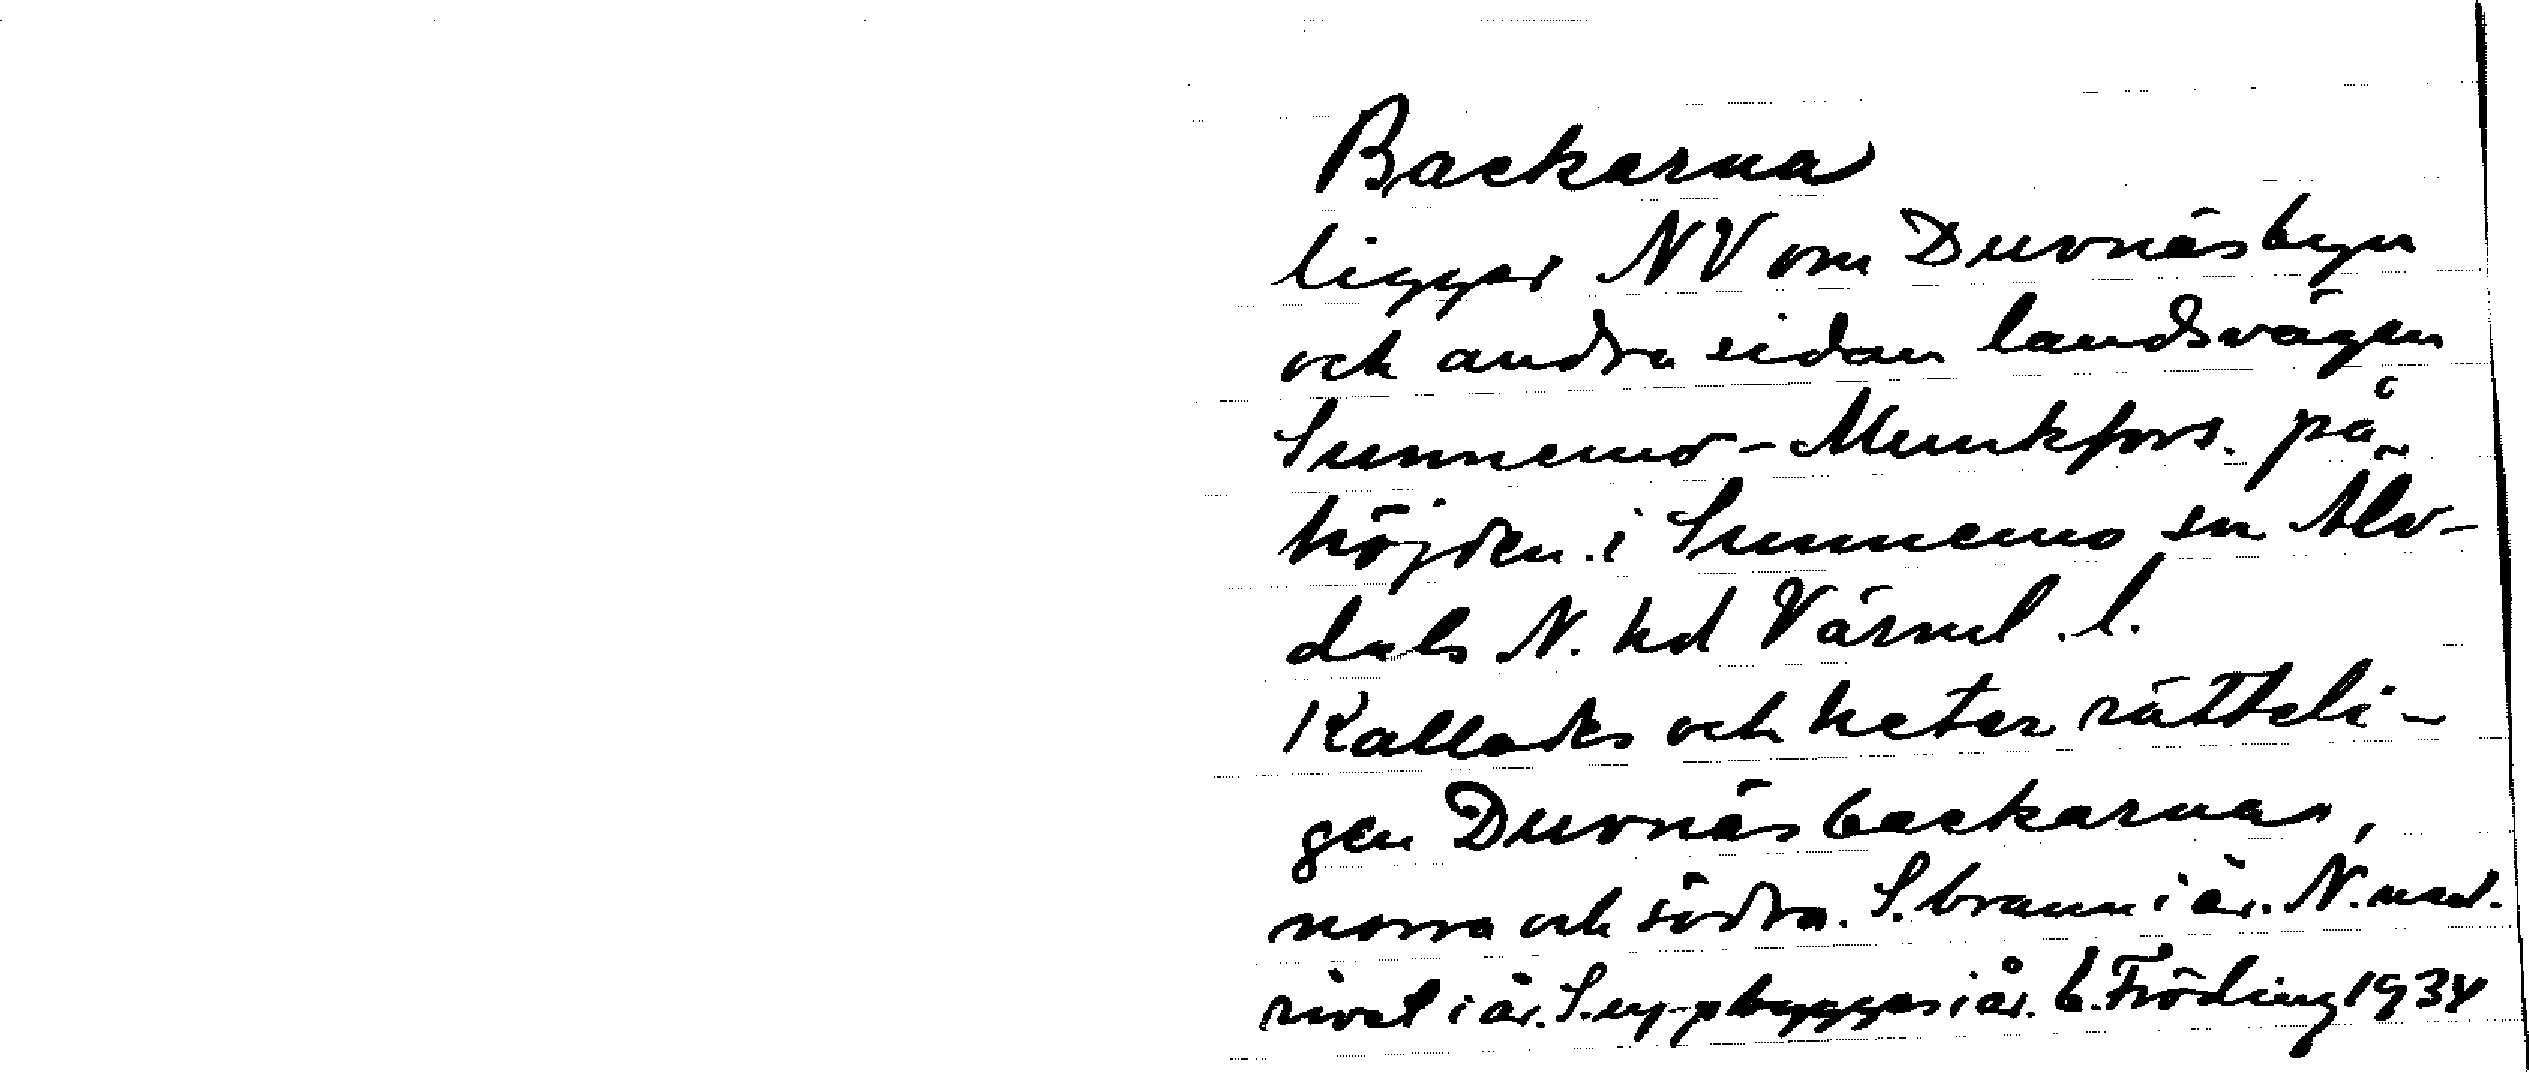 Backarna
ligger NV om Duvnäsbyn
och andra sidan landsvägen
Sunnemo - Munkfors. på
höjden i Sunnemo sn Älv-
dals N. hd Värml. l.
Kallades och heter rätteli-
gen Duvnäsbackarna,
norra och södra. S. brann i år. N. ned.
rivet i år. S. uppbygges i år. b. Fröding 1934